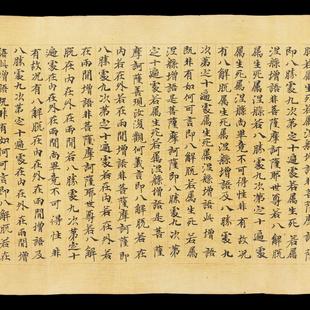 即八勝處九次第定十遍處若屬生死若屬
涅槃增語非菩薩摩訶薩耶世尊若八解脫
屬生死屬涅槃尚畢竟不可得性非有故況
有八解脫屬生死屬涅槃增語及八勝處九
次第定十遍處屬生死屬涅槃增語此增語
既非有如何可言即八解脫若屬生死若屬
涅槃增語是菩薩摩訶薩即八勝處九次第
定十遍處若屬生死若屬涅槃增語是菩薩
摩訶薩善現汝復觀何義言即八解脫若在
內若在外若在兩間增語非菩薩摩訶薩即
八勝處九次第定十遍處若在內若在外若
在兩間增語非菩薩摩訶薩耶世尊若八解
脫在內在外在兩間若八勝處九次第定十
遍處在內在外在兩間尚畢竟不可得性非
有故況有八解脫在內在外在兩間增語及
八勝處九次第定十遍處在內在外在兩間增
語此增語既非有如何可言即八解脫若在